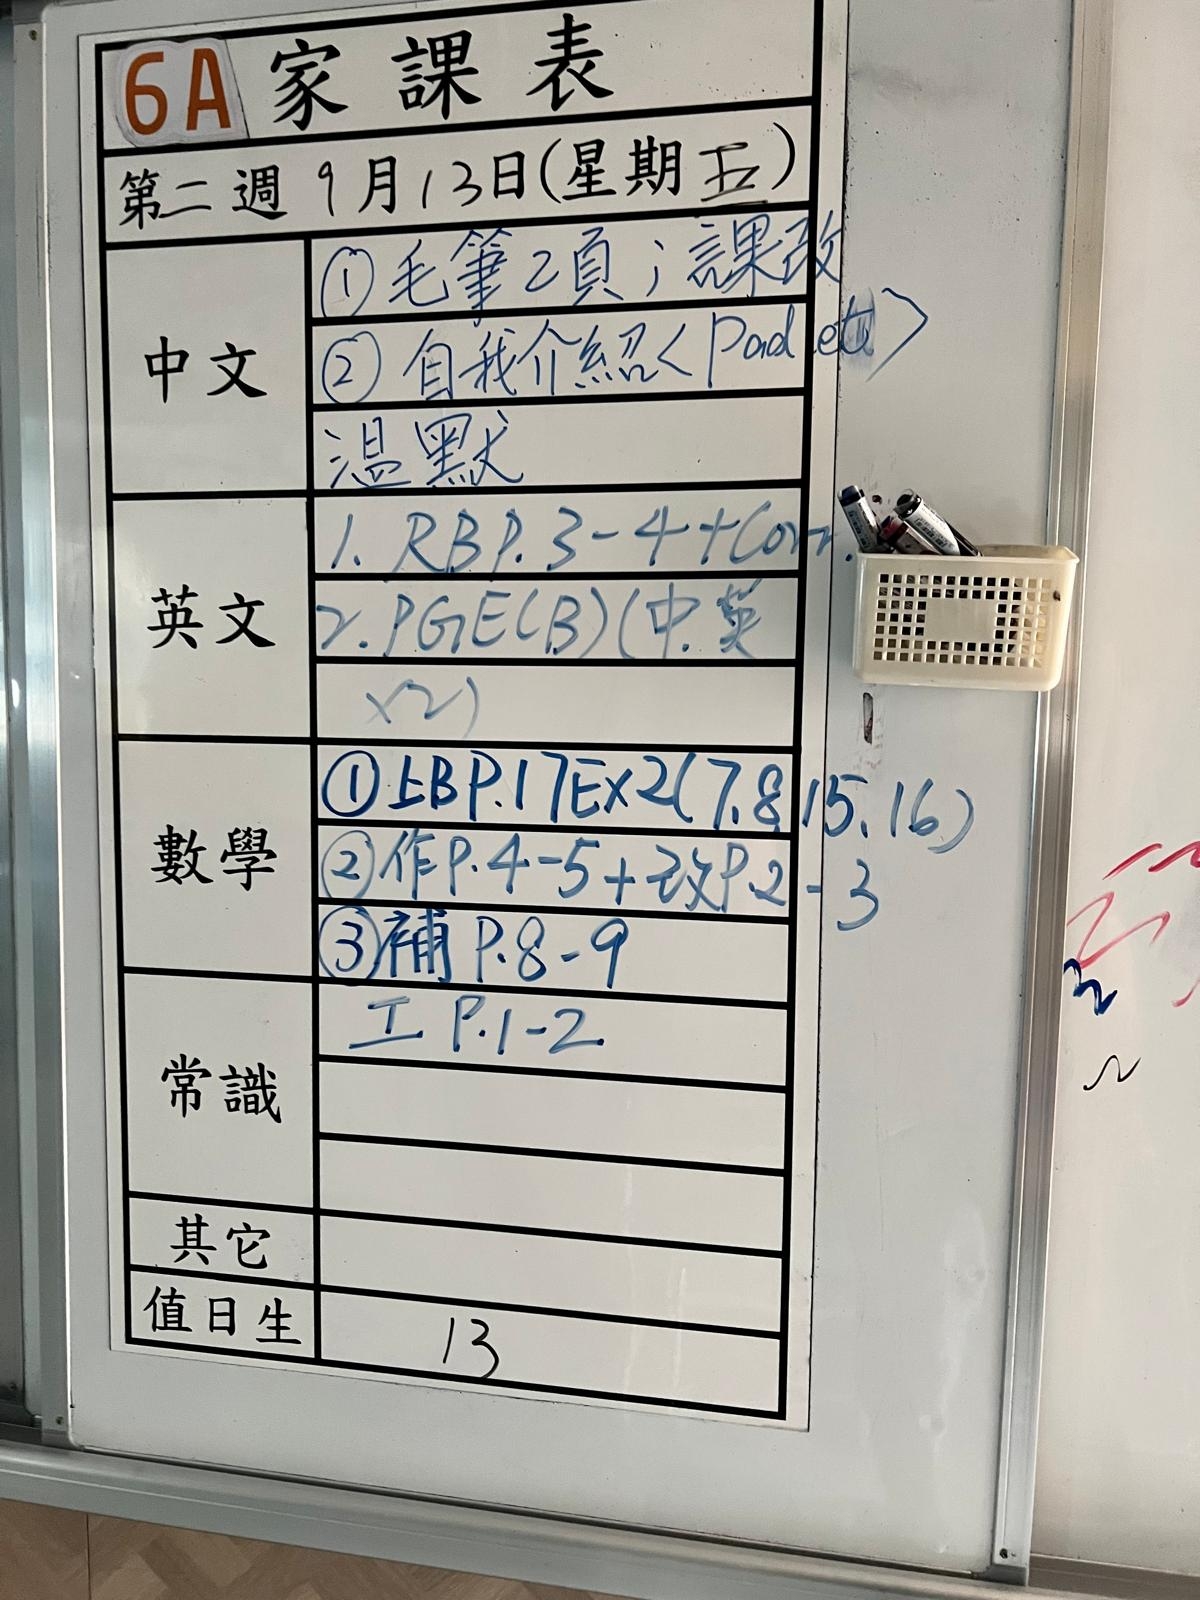 6A 家課表
第二週 9月13日(星期五)
中文
①毛筆2頁；課改
②自我介紹<Padlet>
溫默
英文
1. RBP.3-4+Corr.
2. PGE(B)(中.英
x2)
數學
①上BP.17Ex2(7.8.15.16)
②作P.4-5+改P.2-3
③補P.8-9
常識
工P.1-2
其它
值日生
13